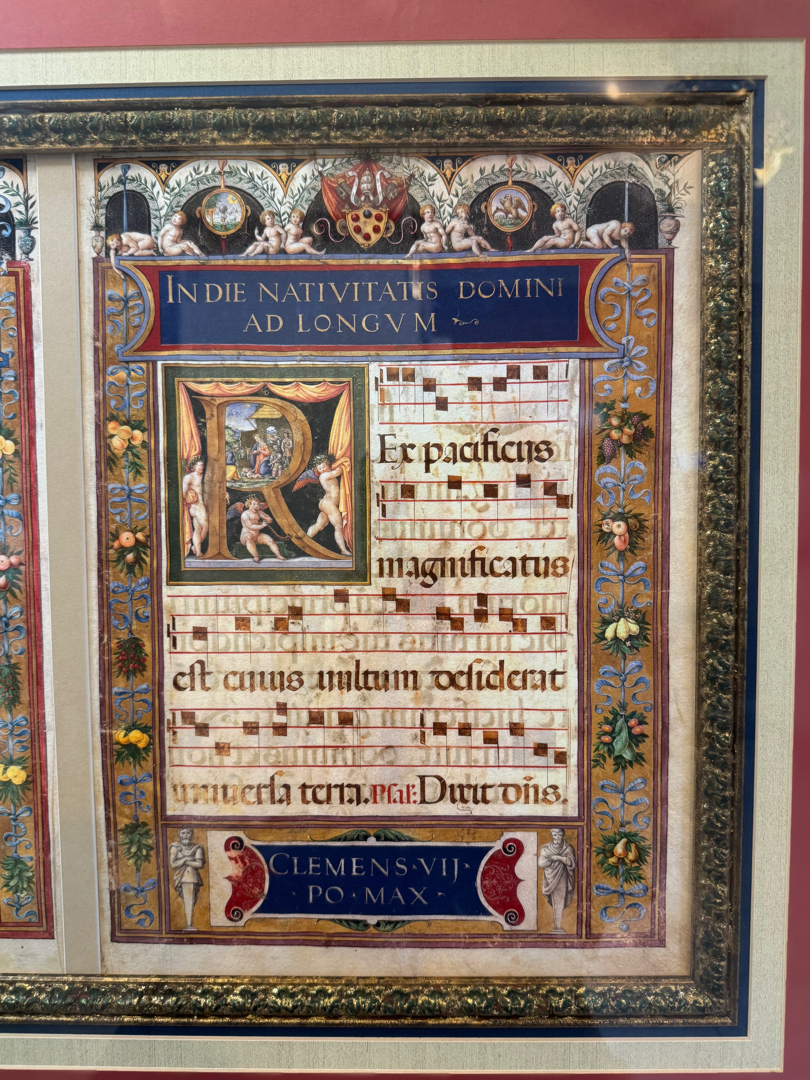 IN DIE NATIVITATIS DOMINI
AD LONGVM
REx pacificus
magnificatus
est cuius uultum desiderat
uniuersa terra. Psal: Dixit dñs.
CLEMENS·VIJ·
PO·MAX